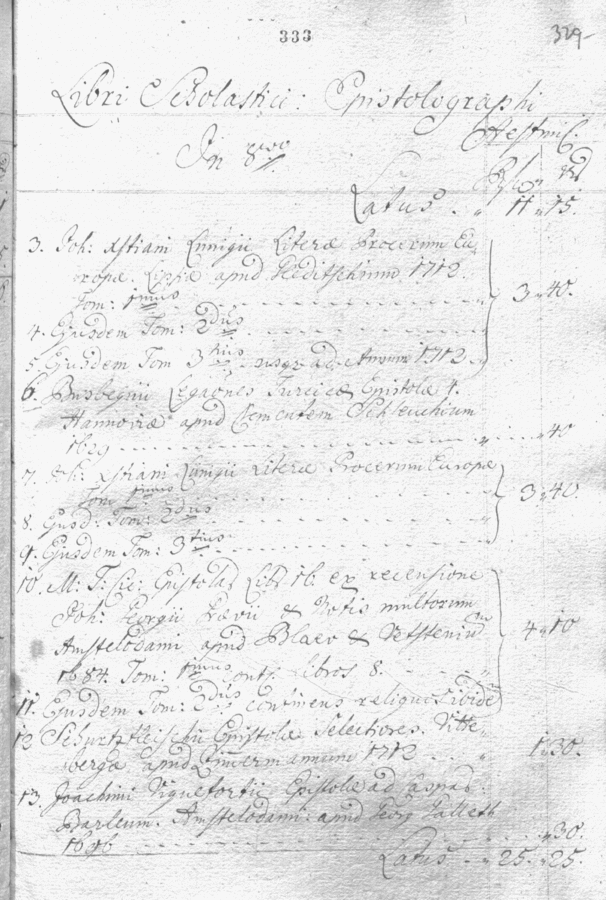 333
329
Libri Scholastici: Epistolographi
Aestim.
In 8vo
Latus . „ 11 „ 75.
3. Joh: Xstiani Lunigii Literæ Procerum Eu-
ropæ. Lipsiæ apud Gleditschium 1712.
Tom: 1mus
3 „ 40.
4. Ejusdem Tom: 2dus
5. Ejusdem Tom 3tius usque ad Annum 1712
6. Busbequii Legaōnes Turcicæ Epistolæ 4.
Hannoviæ apud Clementem Schleuchium
1629 „ 40
7. Joh: Xstiani Lunigii Literæ Procerum Europæ
Tom 1mus
3 „ 40.
8. Ejusd: Tom: 2dus
9. Ejusdem Tom: 3tius
10. M: T: Cic: Epistolæ Lib: 16. ex recensione
Joh: Georgii Grævii & Notis multorum
Amstelodami apud Blaev & Vetstenium
4 „ 10
1684. Tom: 1mus cont: libros 8.
11. Ejusdem Tom: 2dus continens reliquos ibidem
12 Schurtzfleischii Epistolæ Selectiores. Vitte-
bergæ apud Zimmerm annum 1712 1 „ 30.
13. Joachimi Viquefortii Epistolæ ad Caspar:
Barlæum. Amstelodami apud Georg Gallett
1696 „ 30.
Latus . „ 25 „ 25.